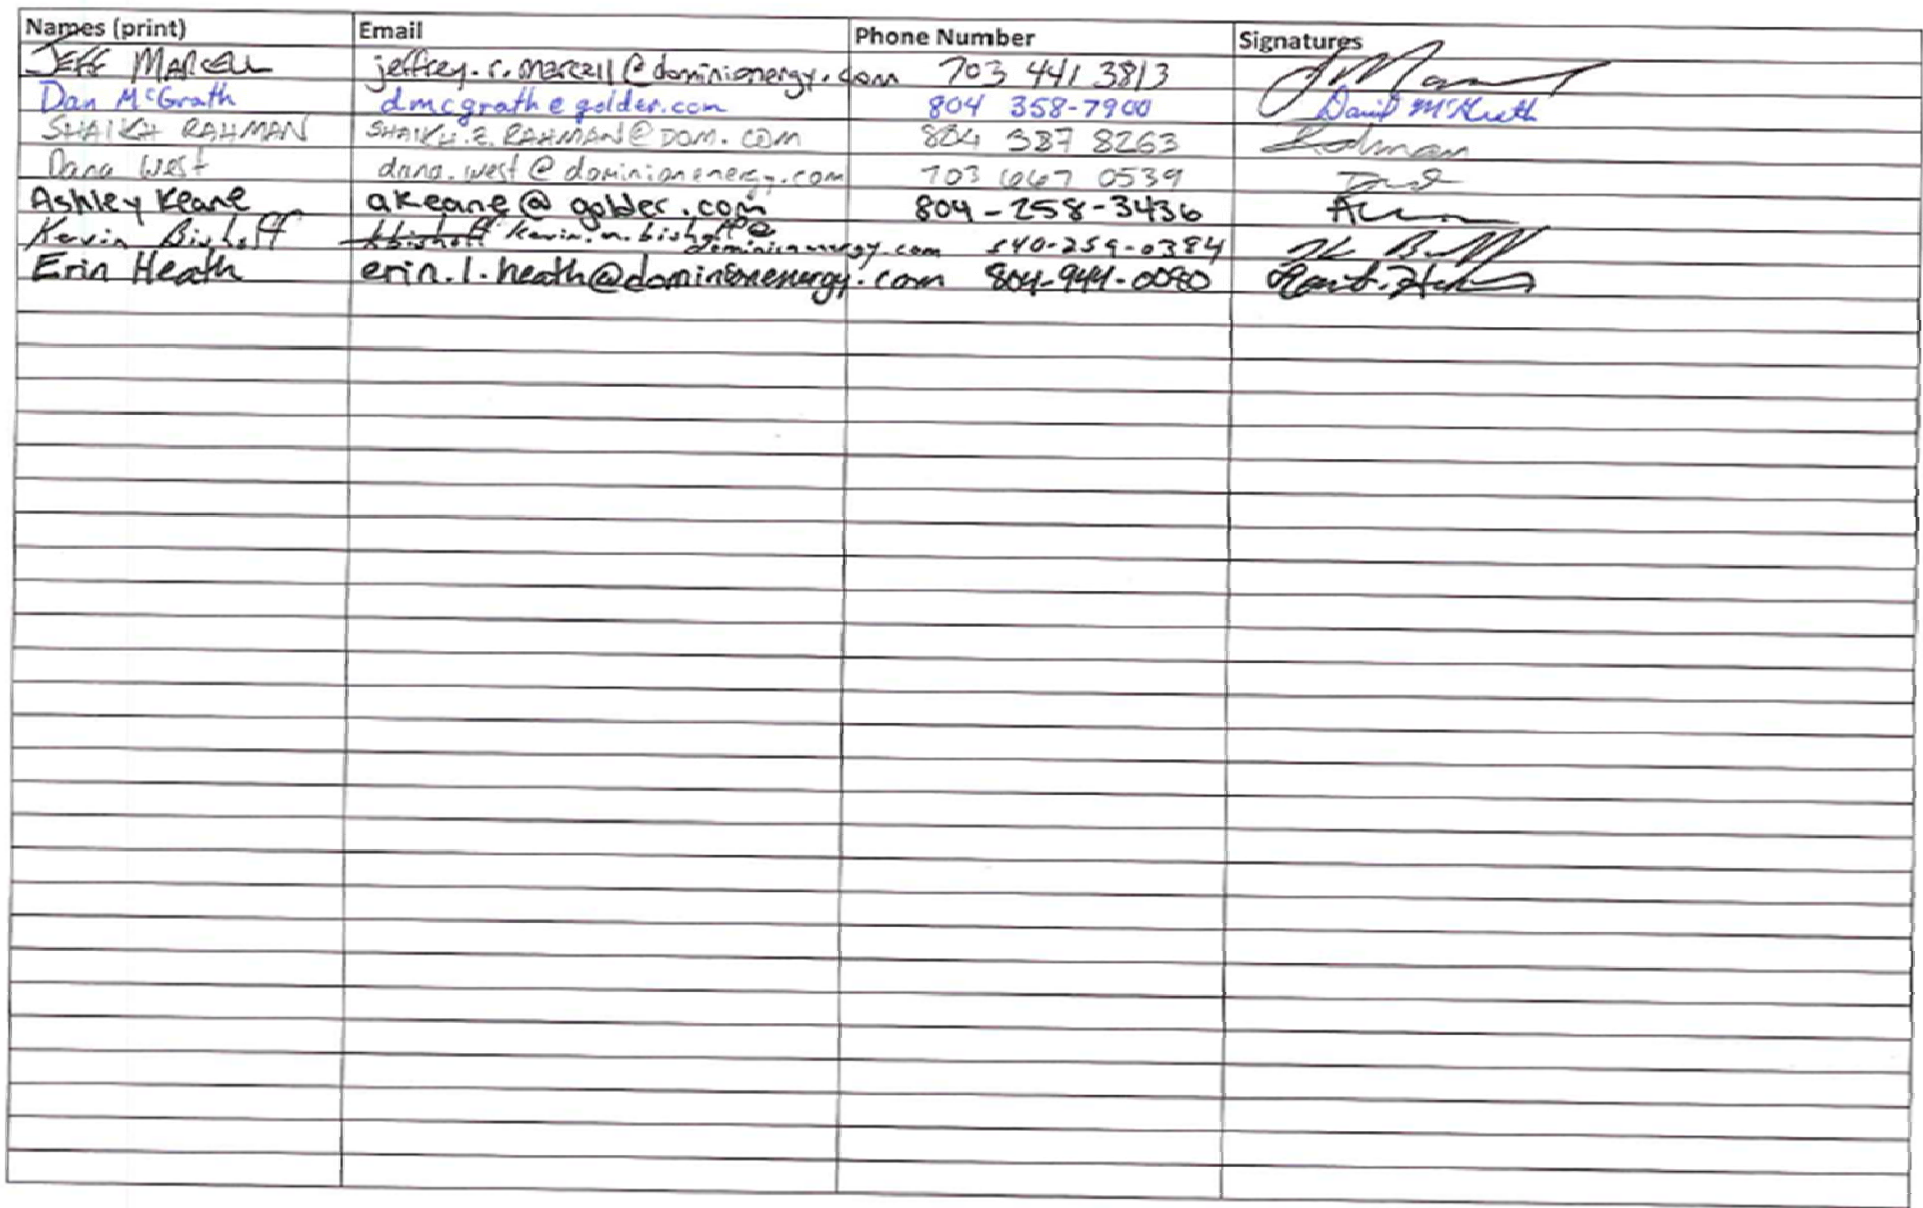 Names (print) Email Phone Number Signatures
JEFF MARCELL jeffrey.r.marcell@dominionergy.com 703 441 3813
Dan McGrath dmcgrath@golder.com 804 358-7900 David McGrath
SHAIKH RAHMAN SHAIKH.Z.RAHMAN@DOM.COM 804 387 8263 Rahman
Dana West dana.west@dominionenergy.com 703 667 0539
Ashley Keane akeane@golder.com 804-258-3436
Kevin Bishoff kbishoff kevin.n.bishoff@
dominionenergy.com 540-259-0384
Erin Heath erin.l.heath@dominionenergy.com 804-944-0080